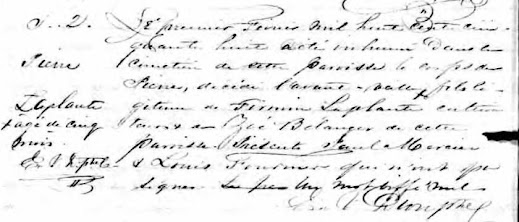 S. 2.
Pierre
Laplante
âgé de cinq
mois
Le premier Février mil huit cent cin-
quante huit a été inhumé dans le
cimetière de cette paroisse le corps de
Pierre, décédé l'avant-veille, fils lé-
gitime de Firmin Laplante cultiva-
teur & de Zoé Bélanger de cette
paroisse. Présents Paul Mercier
& Louis Fournier qui n'ont pu
signer. Un mot biffé nul